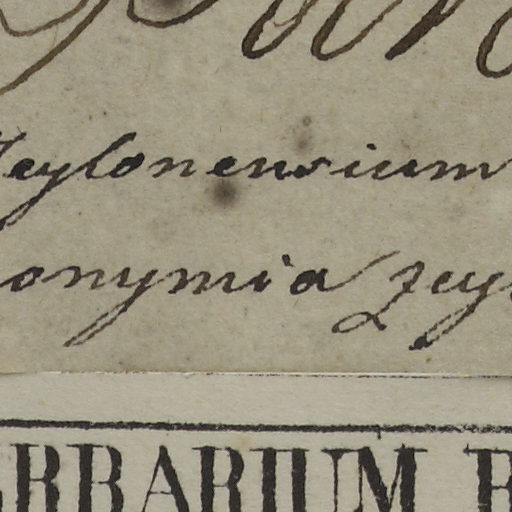 Zeylonensium
onymia zey
ERBARIUM